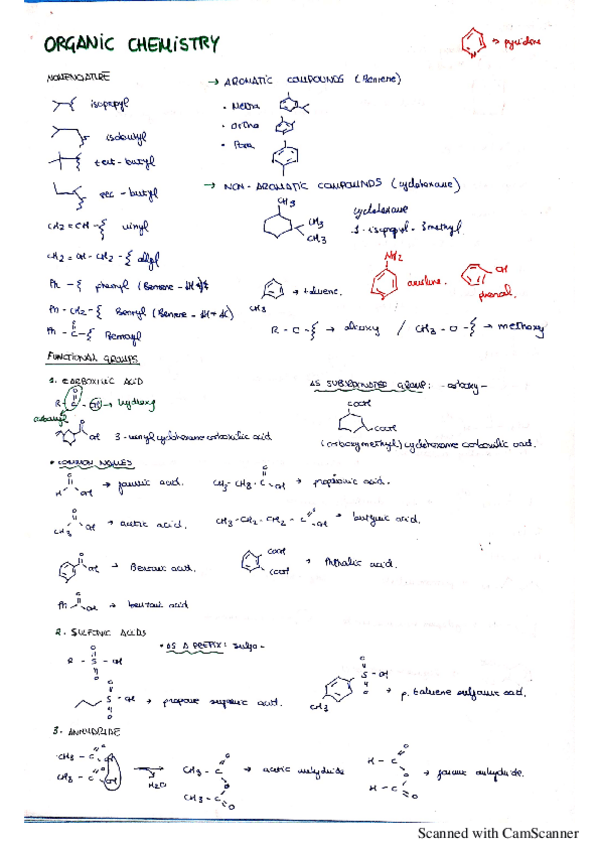 ORGANIC CHEMISTRY
→ pyridine
NOMENCLATURE
isopropyl
isobutyl
tert-butyl
sec-butyl
CH2=CH- vinyl
CH2=CH-CH2- allyl
Ph- phenyl (Benzene
Ph-CH2- Benzyl (Benzene
Ph-C- Benzoyl
O
→ AROMATIC COMPOUNDS (Benzene)
• Meta
• Ortho
• Para
→ NON-AROMATIC COMPOUNDS (cyclohexane)
CH3
CH3
CH3
cyclohexane
1-isopropyl-3methyl
CH3
→ toluene.
NH2
aniline.
OH
phenol.
R-O- → alkoxy / CH3-O- → methoxy
FUNCTIONAL GROUPS
1. CARBOXILIC ACID
O
R-C-OH → hydroxy
carbonyl
O
OH 3-vinyl cyclohexane carboxilic acid
AS SUBORDINATED GROUP: -carboxy-
COOH
COOH
(carboxymethyl) cyclohexane carboxilic acid.
• COMMON NAMES
O
H OH → formic acid.
O
CH3-CH2-C-OH → propionic acid.
O
CH3 OH → acetic acid.
O
CH3-CH2-CH2-C-OH → butyric acid.
O
OH → Benzoic acid.
COOH
COOH
→ Phthalic acid.
O
Ph OH → benzoic acid
2. SULFONIC ACIDS
• AS A PREFIX: sulfo-
O
R-S-OH
O
O
S-OH → propane sulfonic acid.
O
CH3
O
S-OH
O
→ p. toluene sulfonic acid.
3. ANHYDRIDE
CH3-C OH
O
CH3-C OH
O
→
H2O
CH3-C O
O
CH3-C O
→ acetic anhydride
H-C O
O
H-C O
→ formic anhydride.
Scanned with CamScanner